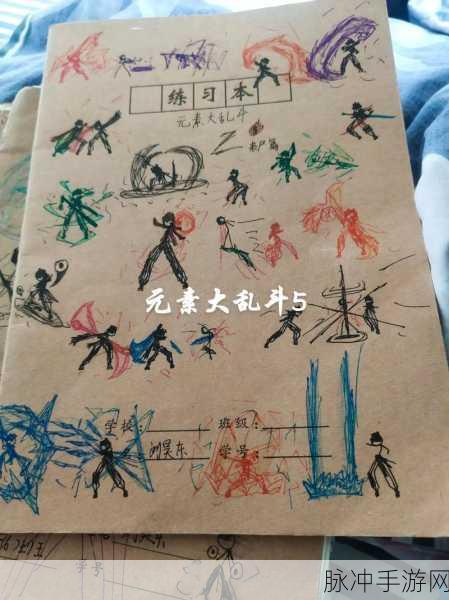 练习本
元素大乱斗
元素大乱斗5
学校：
班级：
刘昊东
学号：
学号
脉冲手游网